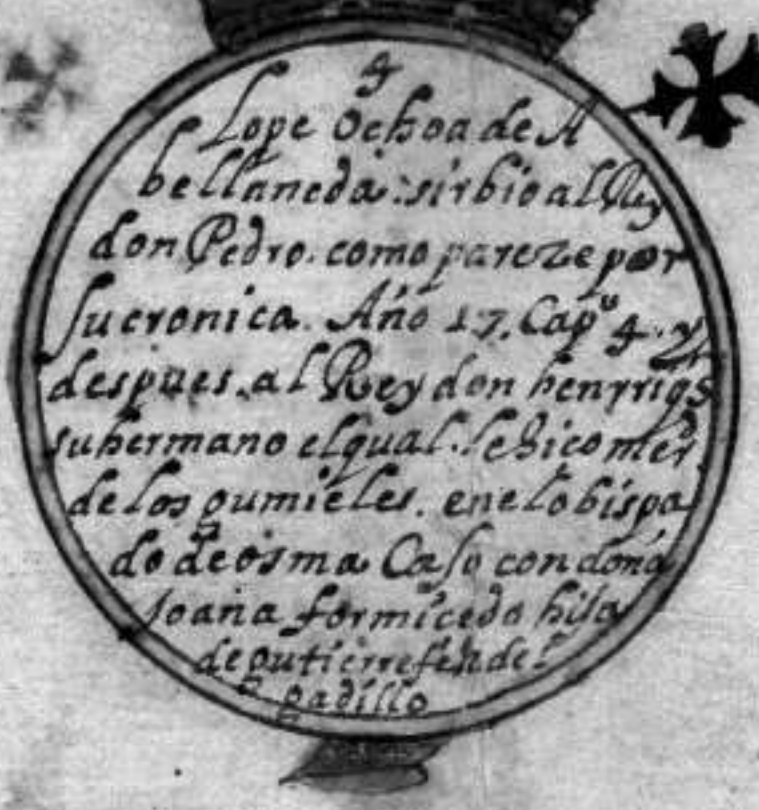 4
Lope Ochoa de A
bellaneda: sirbio al Rey
don Pedro. como pareze por
su cronica. Año 17. Capº 4. y
despues. al Rey don henrriqs
su hermano el qual. le hico mer̃d
de los gumieles. en el obispa
do de osma Caso con doña
Joana formiceda hija
de gutierre fer̃z del
gadillo